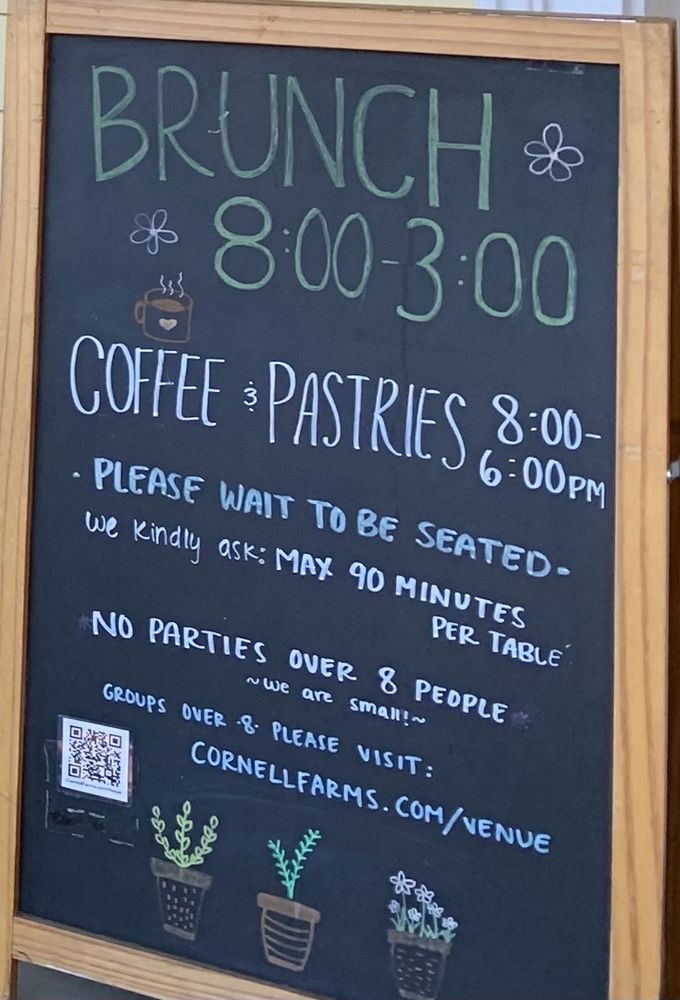 BRUNCH
8:00-3:00
COFFEE & PASTRIES 8:00-
6:00PM
· PLEASE WAIT TO BE SEATED -
We Kindly ask: MAX 90 MINUTES
PER TABLE
*NO PARTIES OVER 8 PEOPLE*
~we are small!~
GROUPS OVER ·8· PLEASE VISIT:
CORNELLFARMS.COM/VENUE